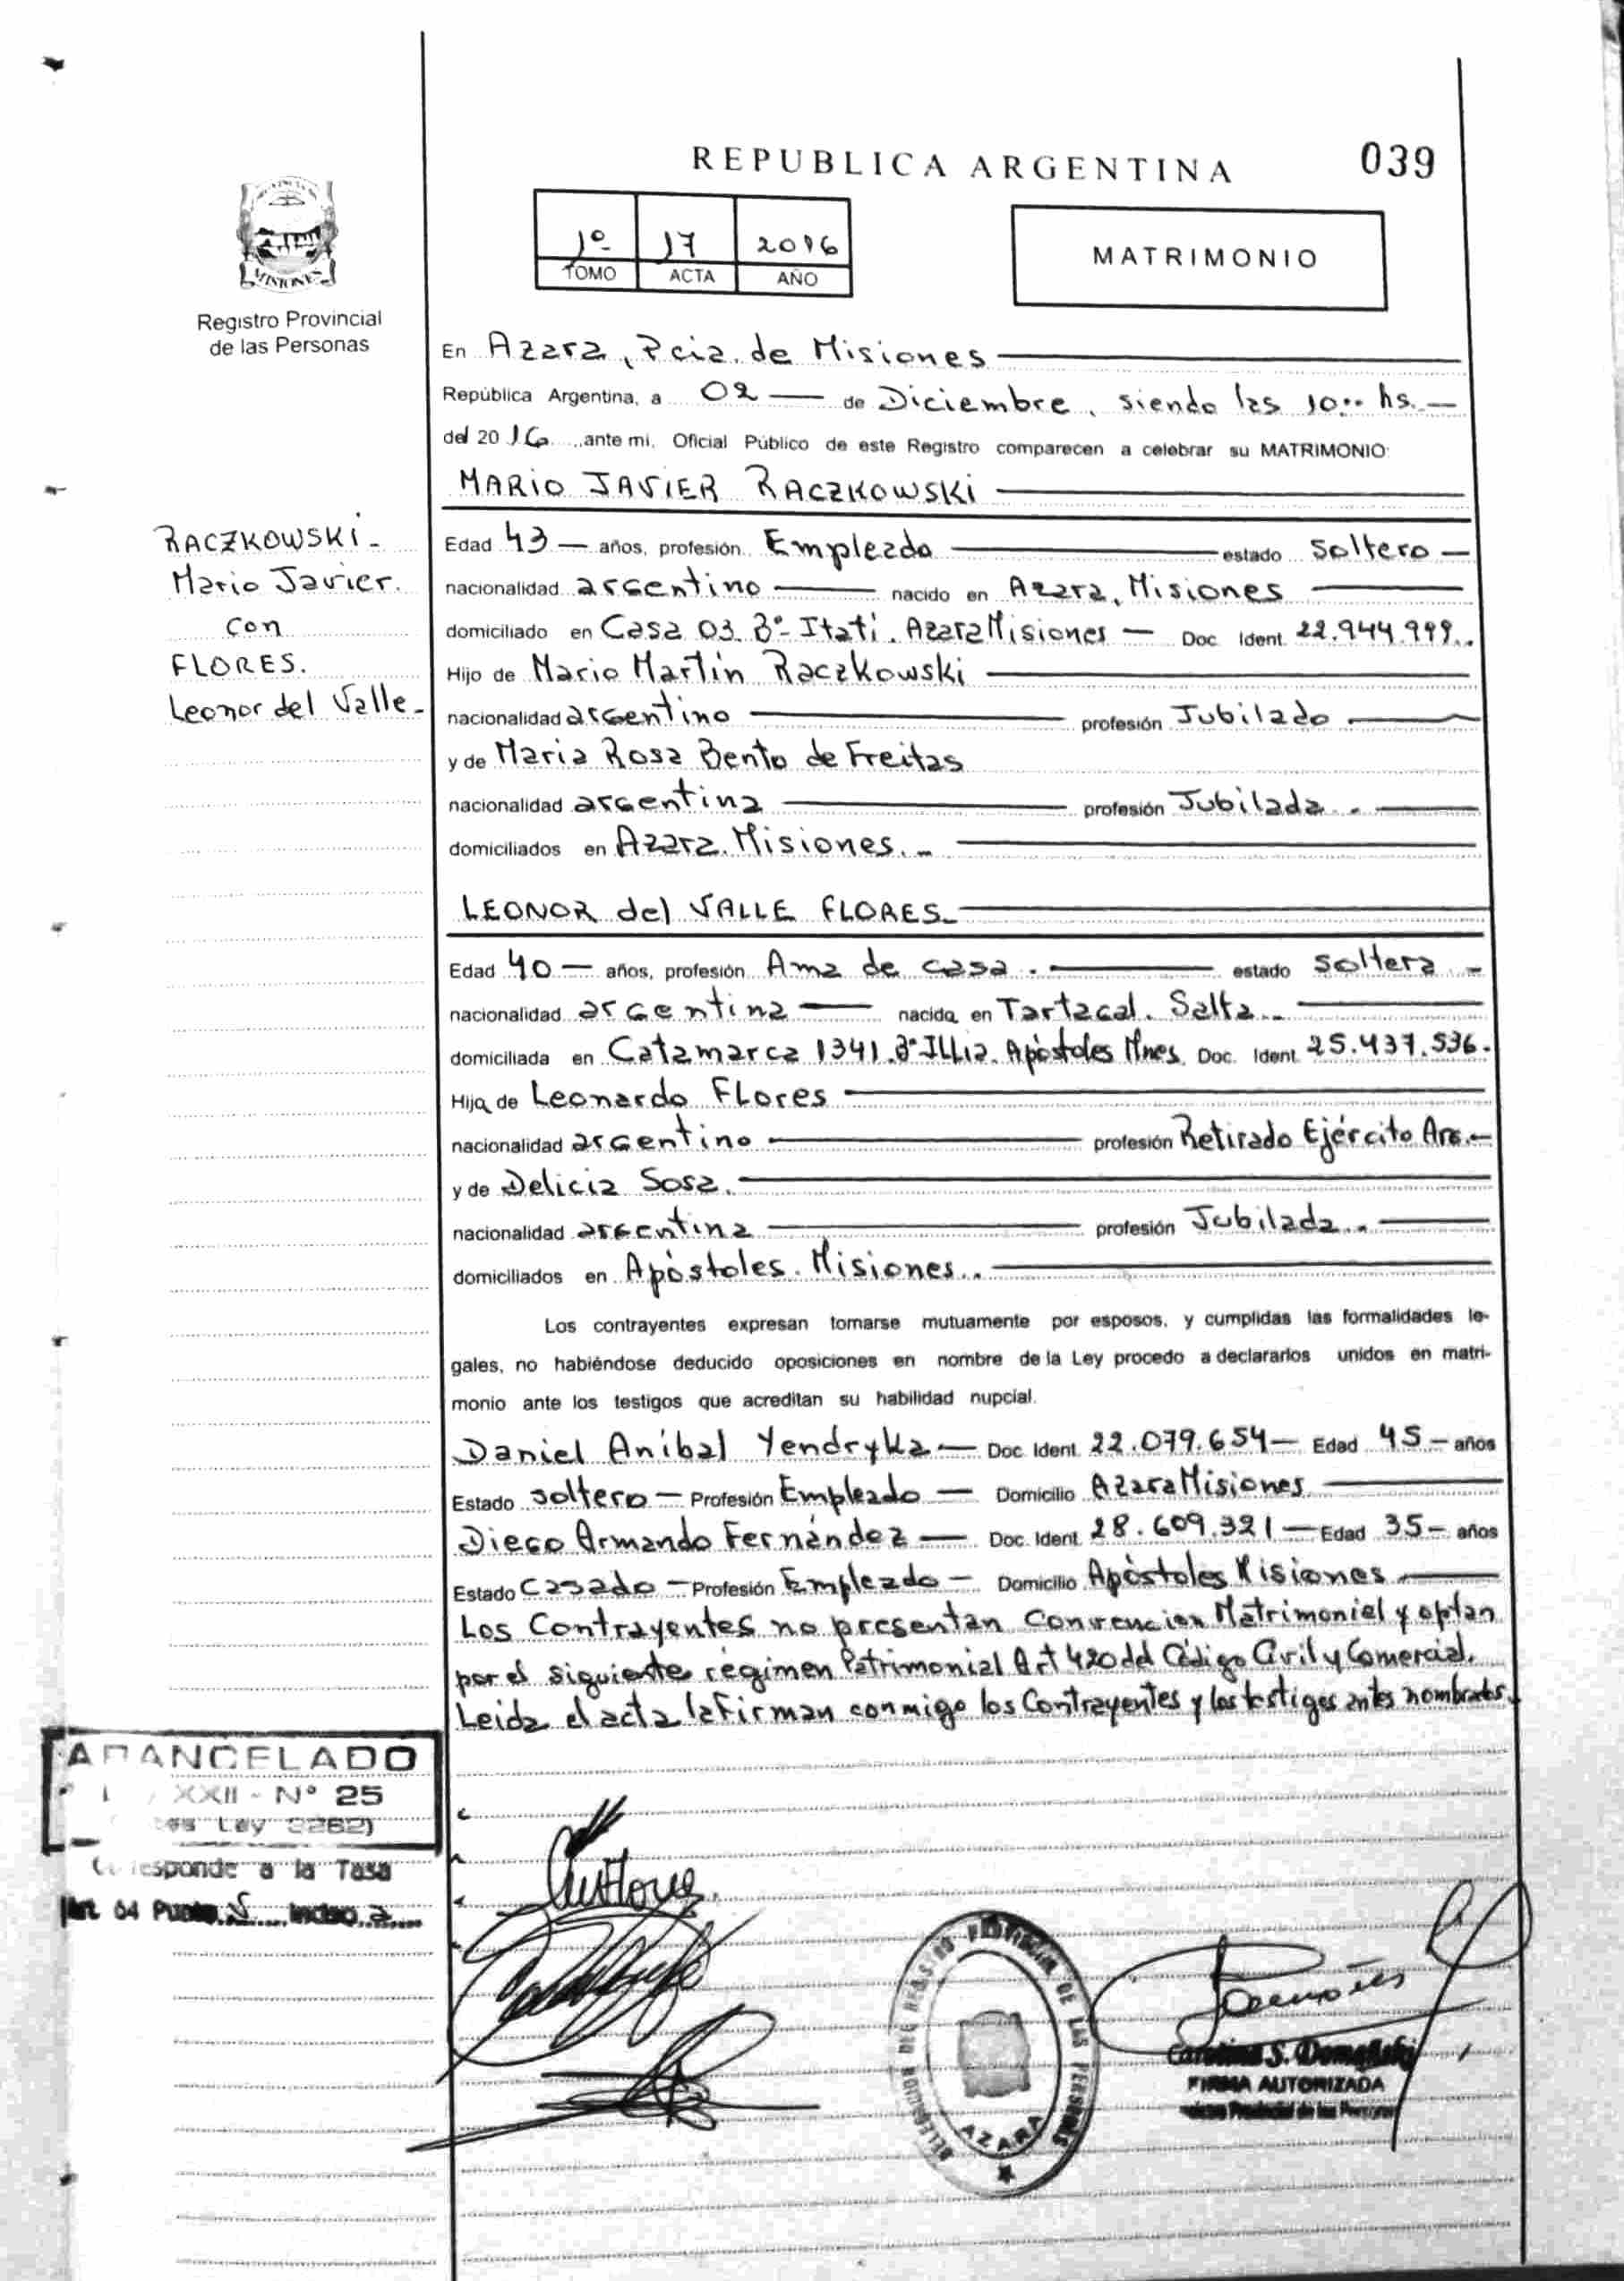 REPUBLICA ARGENTINA
039
1º 17 2016
TOMO ACTA AÑO
MATRIMONIO
MISIONES
Registro Provincial
de las Personas
RACZKOWSKI-
Mario Javier.
con
FLORES.
Leonor del Valle-
En Azara, Pcia. de Misiones
República Argentina, a 02 — de Diciembre, siendo las 10.. hs.—
del 2016 ante mi, Oficial Público de este Registro comparecen a celebrar su MATRIMONIO:
MARIO JAVIER RACZKOWSKI
Edad 43 — años, profesión Empleado — estado Soltero —
nacionalidad argentino — nacido en Azara, Misiones
domiciliado en Casa 03 Bº- Itatí. Azara Misiones — Doc Ident 22.944.999.
Hijo de Mario Martín Raczkowski
nacionalidad argentino — profesión Jubilado
y de Maria Rosa Bento de Freitas
nacionalidad argentina — profesión Jubilada.
domiciliados en Azara. Misiones.-
LEONOR del VALLE FLORES-
Edad 40 — años, profesión Ama de casa. — estado soltera -
nacionalidad argentina — nacida en Tartagal. Salta.-
domiciliada en Catamarca 1341.Bº ILLia. Apóstoles Mnes. Doc. Ident 25.437.536.
Hija de Leonardo Flores
nacionalidad argentino — profesión Retirado Ejército Arg.-
y de Delicia Sosa.
nacionalidad argentina — profesión Jubilada.-
domiciliados en Apóstoles. Misiones..
Los contrayentes expresan tomarse mutuamente por esposos, y cumplidas las formalidades le-
gales, no habiéndose deducido oposiciones en nombre de la Ley procedo a declararlos unidos en matri-
monio ante los testigos que acreditan su habilidad nupcial.
Daniel Aníbal Yendryka — Doc. Ident. 22.079.654 — Edad 45 - años
Estado soltero — Profesión Empleado — Domicilio Azara Misiones
Diego Armando Fernández — Doc. Ident. 28.609.321 — Edad 35 - años
Estado Casado — Profesión Empleado — Domicilio Apóstoles Misiones
Los Contrayentes no presentan Convencion Matrimonial y optan
por el siguiente régimen Patrimonial Art 420 del Código Civil y Comercial.
Leida el acta la firman conmigo los Contrayentes y los testigos antes nombrados.
ARANCELADO
XXII - Nº 25
Ley 3262)
Corresponde a la Tasa
Art. 04 Punto 5 Inciso a
REGISTRO PROVINCIAL DE LAS PERSONAS
AZARA
FIRMA AUTORIZADA
Provincial de las Personas